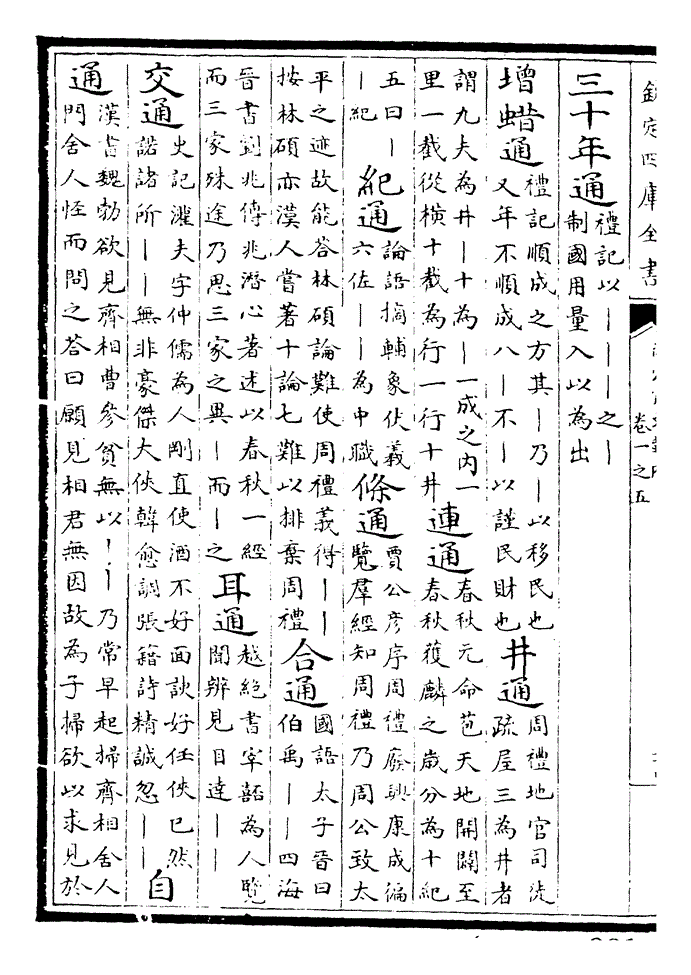 欽定四庫全書
卷一之五
三十年通
禮記以｜｜｜之｜
制國用量入以為出
增蜡通
禮記順成之方其｜乃｜以移民也
又年不順成八｜不｜以謹民財也
井通
周禮地官司徒
疏屋三為井者
謂九夫為井｜十為｜一成之内一
里一截從橫十截為行一行十井
連通
春秋元命苞天地開闢至
春秋獲麟之歲分為十紀
五曰｜
｜紀
紀通
論語摘輔象伏義
六佐｜｜為中職
條通
賈公彦序周禮廢興康成徧
覽羣經知周禮乃周公致太
平之迹故能荅林碩論難使周禮義得｜｜
按林碩亦漢人嘗著十論七難以排棄周禮
合通
國語太子晉曰
伯禹｜｜四海
晉書劉兆傳兆潛心著述以春秋一經
而三家殊途乃思三家之異｜而｜之
耳通
越絶書宰嚭為人覽
聞辨見目達｜｜
交通
史記灌夫字仲儒為人剛直使酒不好面諛好任俠已然
諾諸所｜｜無非豪傑大俠韓愈調張籍詩精誠忽｜｜
自
通
漢書魏勃欲見齊相曹參貧無以｜｜乃常早起掃齊相舍人
門舍人怪而問之荅曰願見相君無因故為子掃欲以求見於